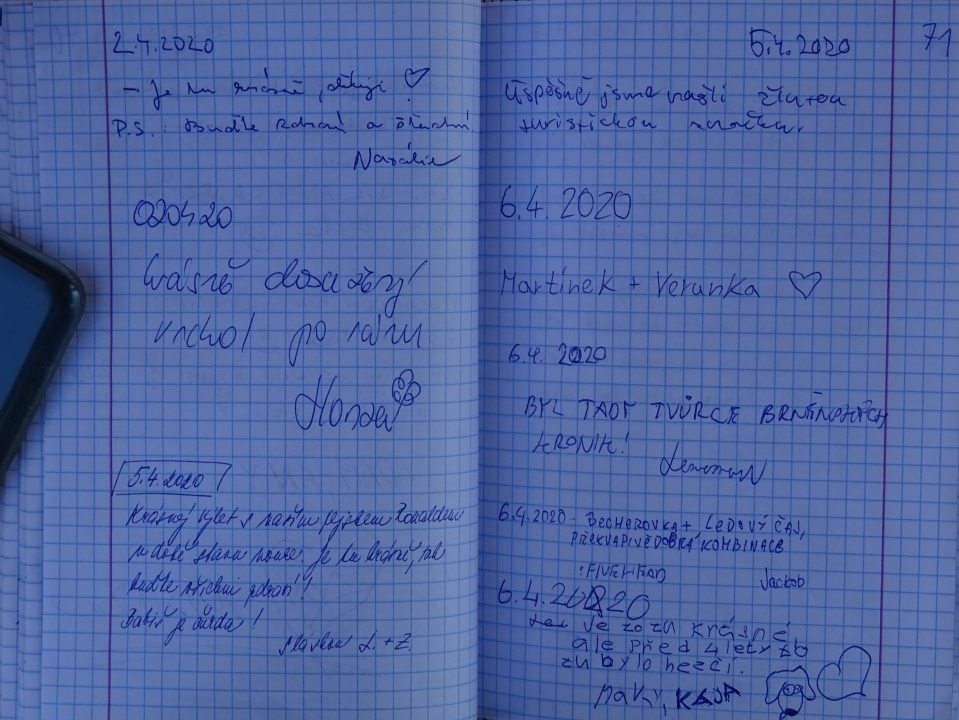 2.4.2020
- Je tu krásně, děkuji ♡
P.S.: Buďte zdraví a šťastní
Natálie
020420
krásně
vrchol po ránu
Honza
5.4.2020
Krásný výlet s naším pejskem Ronaldem
v době stavu nouze. Je tu krásně, tak
buďte všichni zdraví!
Babiš je
L. + Z.
5.4.2020
71
Úspěšně jsme našli žlutou
turistickou značku.
6.4.2020
Martínek + Verunka ♡
6.4. 2020
BYL TADY TVŮRCE BRNĚNSKÝCH
KRONIK!
6.4.2020 - BECHEROVKA + LEDOVÝ ČAJ,
PŘEKVAPIVĚ DOBRÁ KOMBINACE
6.4.2020
Je to tu krásné
ale před 4 lety to
tu bylo hezčí.